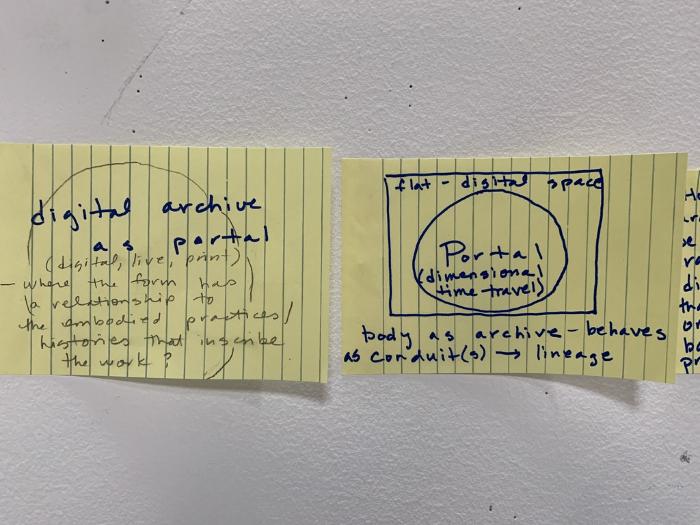 digital archive
as portal
(digital, live, print)
- where the form has
a relationship to
the embodied practices/
histories that inscribe
the work?
flat - digital space
Portal
(dimensional
time travel)
body as archive - behaves
as conduit(s) → lineage